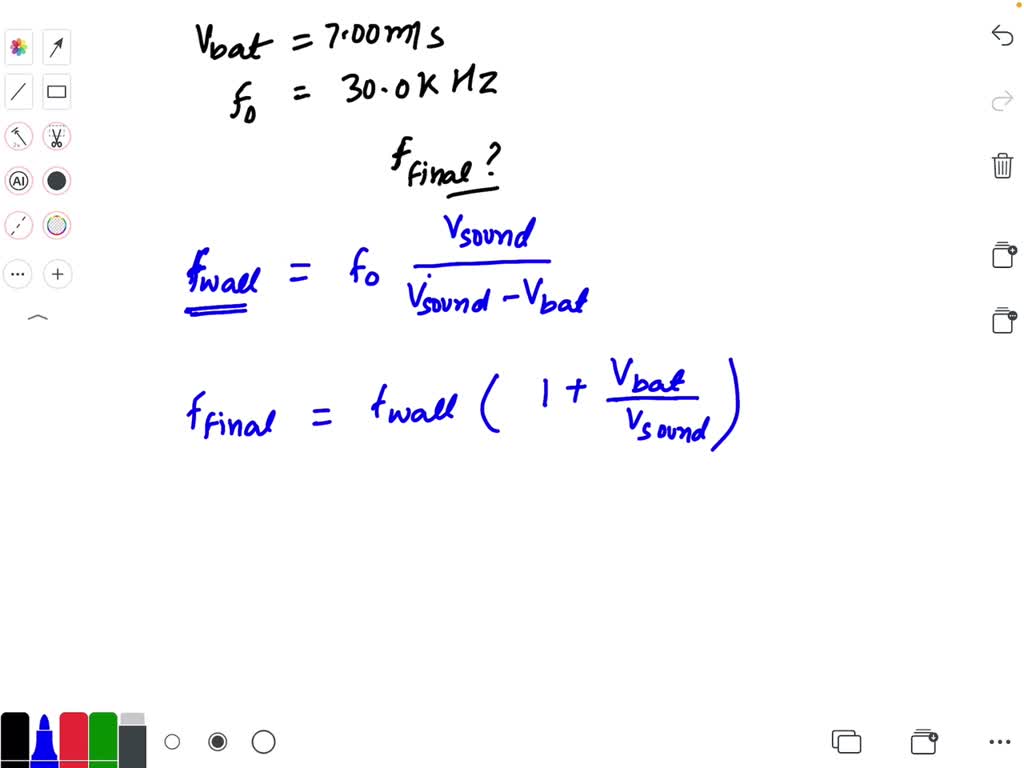 Vbat = 7.00m/s
f0 = 30.0K Hz
f final ?
fwall = f0 Vsound / Vsound - Vbat
f Final = fwall ( 1 + Vbat / Vsound )